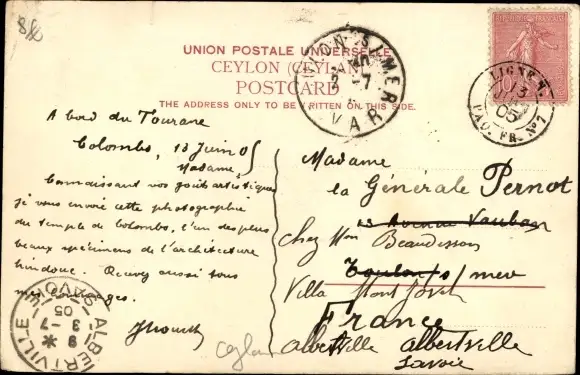 UNION POSTALE UNIVERSELLE
CEYLON (CEYLAN)
POSTCARD
THE ADDRESS ONLY TO BE WRITTEN ON THIS SIDE.
VAR
LIGNE N
13 JUIN 05
PAQ. FR. No 7
A bord du Tourane
Colombo, 13 Juin 05
Madame,
Connaissant vos goûts artistiques
je vous envoie cette photographie
du temple de Colombo, l'un des plus
beaux spécimens de l'architecture
hindoue. Recevez aussi tous
mes hommages.
Madame
la Générale Pernot
13 Avenue Vauban
Chez Mon Beaudisson
Toulon s/mer
Villa Mont
France
Albertville Albertville
Savoie
Ceylan
ALBERTVILLE
SAVOIE
9 *
3 -7
05